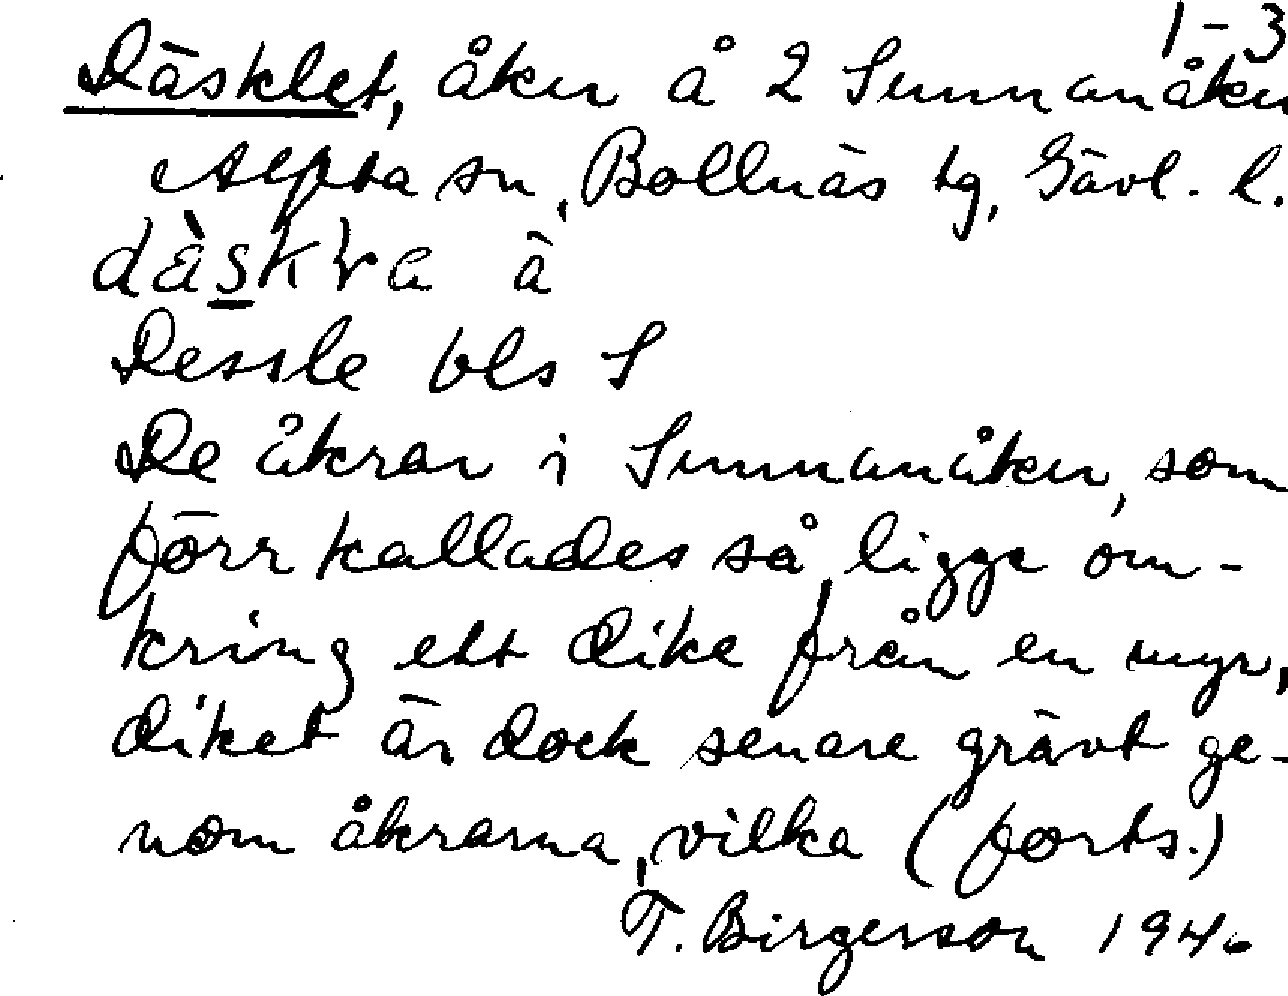 1-3
Däsklet, åker å 2 Sunnanåker
Alfta sn, Bollnäs tg, Gävl. l.
dàskɫa ä
Dessle bls S
De åkrar i Sunnanåker, som
förr kallades så, ligge om-
kring ett dike från en myr,
diket är dock senare grävt ge-
nom åkrarna, vilka (forts.)
T. Birgerson 1946